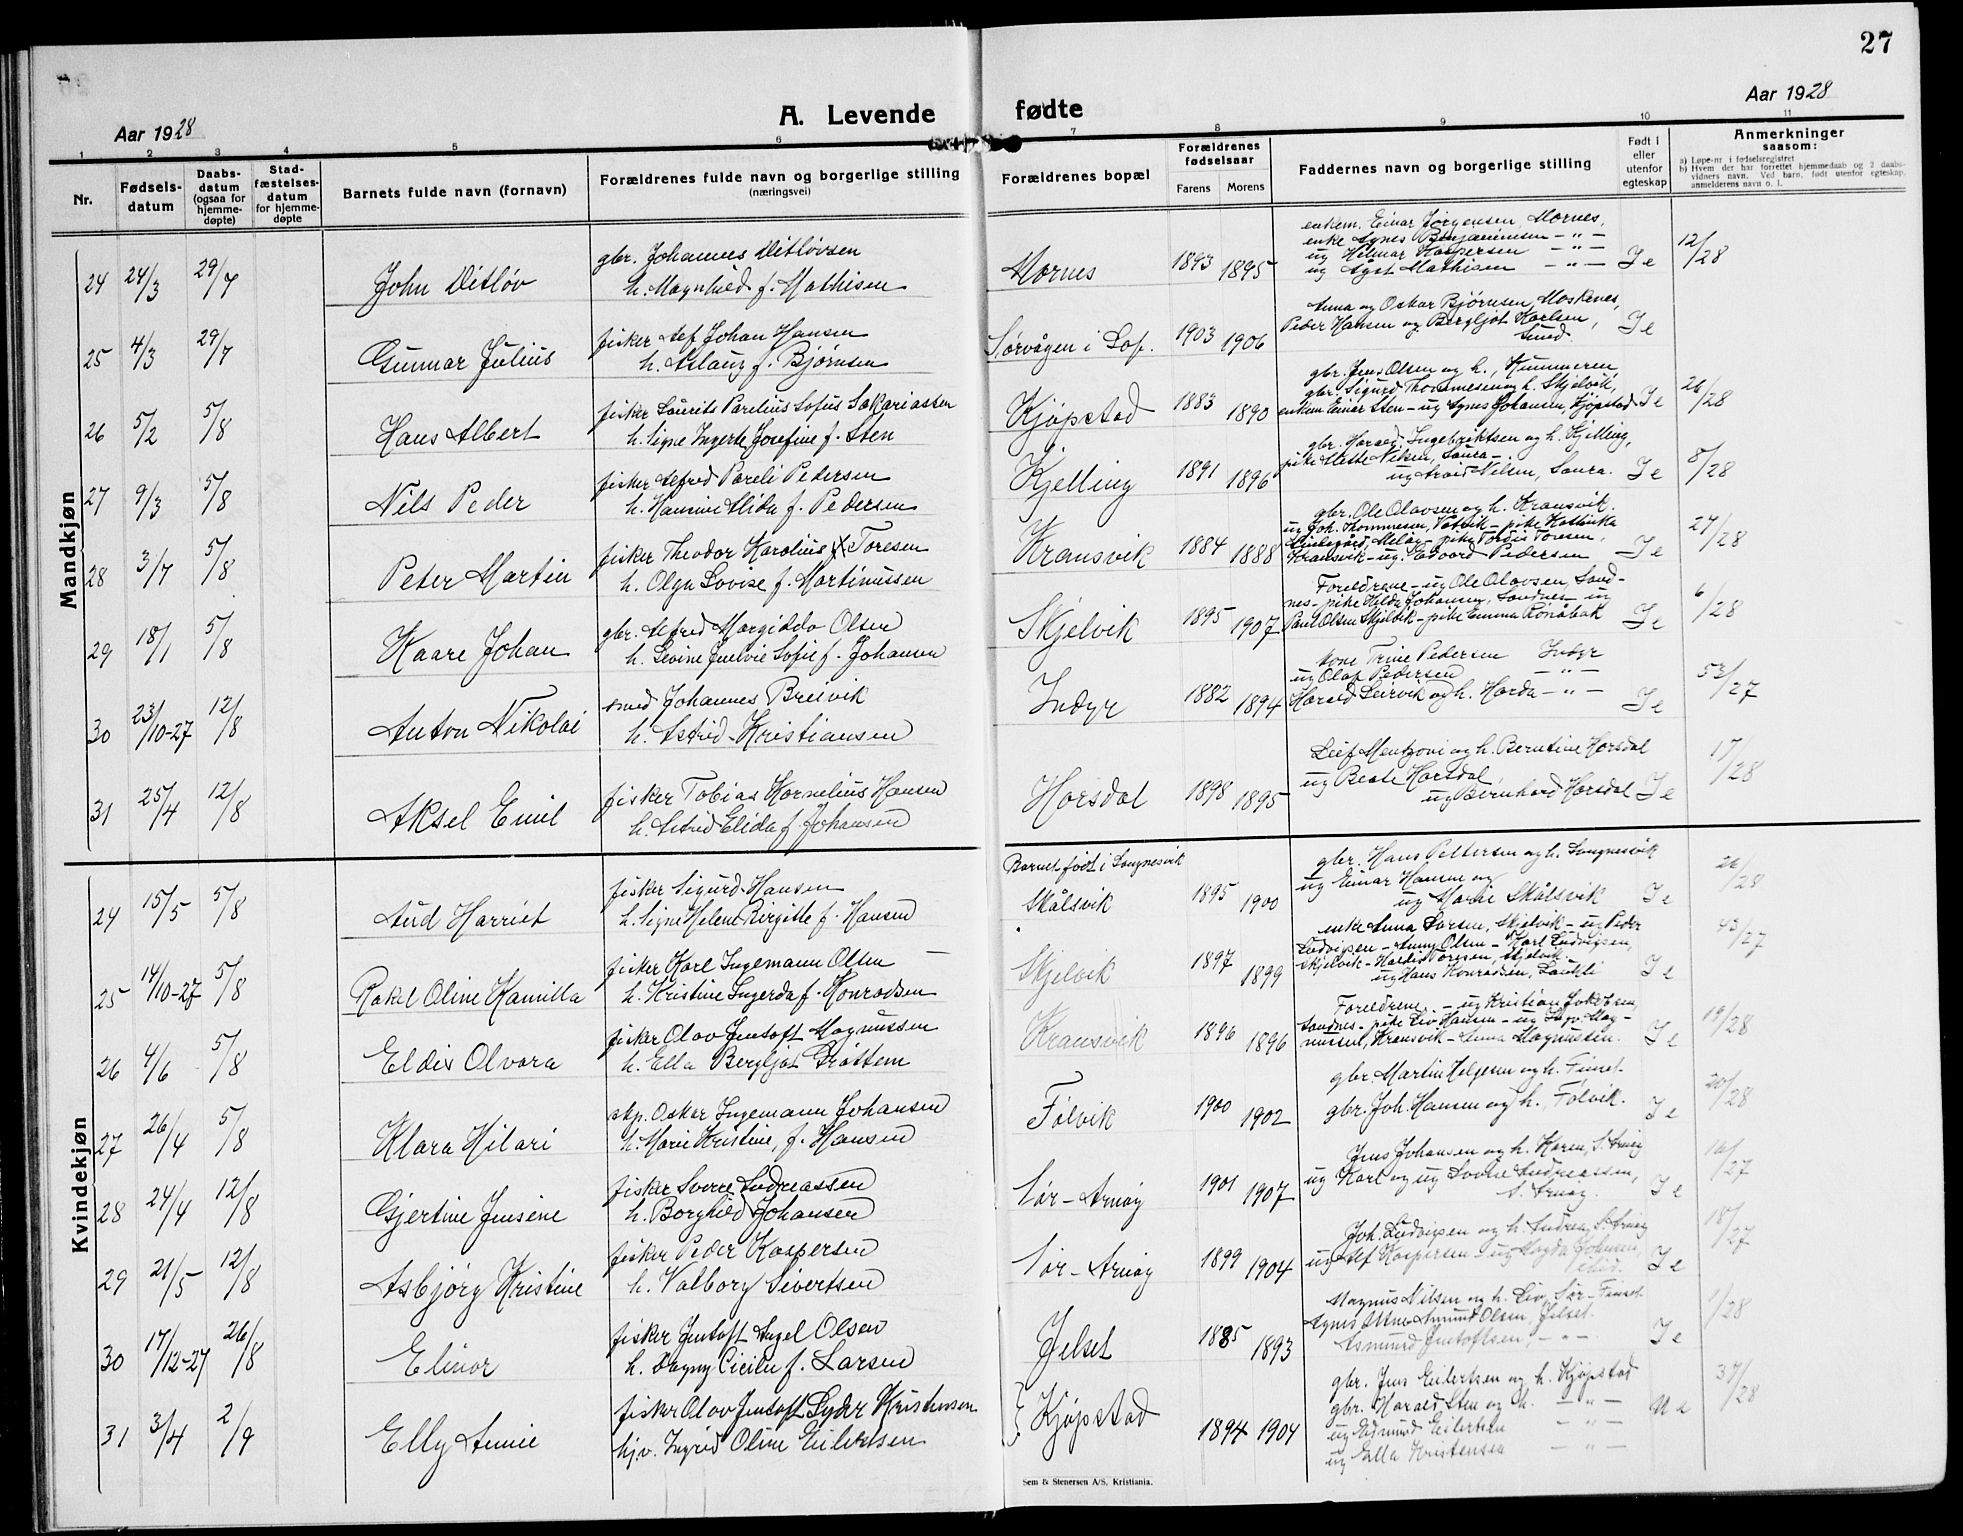 27
Aar 1928
A. Levende fødte
Aar 1928
1 2 3 4 5 6 7 8 9 10 11
Nr.
Fødsels-
datum
Daabs-
datum
(ogsaa for
hjemme-
døpte)
Stad-
fæstelses-
datum
for hjemme-
døpte
Barnets fulde navn (fornavn)
Forældrenes fulde navn og borgerlige stilling
(næringsvei)
Forældrenes bopæl
Forældrenes
fødselsaar
Farens Morens
Faddernes navn og borgerlige stilling
Født i
eller
utenfor
egteskap
Anmerkninger
saasom:
a) Løpe-nr i fødselsregistret
b) Hvem der har forrettet hjemmedaab og 2 daabs-
vidners navn. Ved barn, født utenfor egteskap,
anmelderens navn o. l.
Mandkjøn
24 24/3 29/7 John Ditløv
gbr. Johannes Ditløvsen
h. Magnhild f. Mathisen
Mornes 1893 1895
enkem. Einar Jørgensen, Mornes,
enke Agnes Benjaminsen - " -
ug Helmar Kaspersen - " -
ug Agot Mathisen - " -
Ie 12/28
25 4/3 29/7 Gunnar Julius
fisker Alf Johan Hansen
h. Aslaug f. Bjørnsen
Sørvågen i Lof. 1903 1906
Anna og Oskar Bjørnsen, Moskenes,
Peder Hansen og Bergljot Karlsen,
Sund
Ie
26 5/2 5/8 Hans Albert
fisker Laurits Parelius Sofus Sakariassen
h. Signe Ingerte Josefine f. Sten
Kjøpstad 1883 1890
gbr. Jens Olsen og h., Hummeren,
gbr. Sigurd Thommesen og h. Skjelvik,
enkem Einar Sten - ug Agnes Johansen, Kjøpstad
Ie 26/28
27 9/3 5/8 Nils Peder
fisker Alfred Pareli Pedersen
h. Hansine Alida f. Pedersen
Kjelling 1891 1896
gbr. Harald Ingebriktsen og h. Kjelling,
pike Mette Nilsen, Saura -
ug Arvid Nilsen, Saura.
Ie 8/28
28 3/7 5/8 Peter Martin
fisker Theodor Karolius Toresen
h. Olga Lovise f. Martinussen
Kransvik 1884 1888
gbr. Ole Olavsen og h. Kransvik.
ug Joh. Thommesen, Våtvik - pike Kathinka
Meløy - pike Tordis Toresen,
Kransvik - ug. Edvard Pedersen
Ie 27/28
29 18/1 5/8 Kaare Johan
gbr. Alfred Margiddo Olsen
h. Levine Julvie Sofie f. Johansen
Skjelvik 1895 1907
Foreldrene - ug Ole Olavsen, Sand-
nes - pike Hylda Johansen, Sandnes - ug
Paul Olsen Skjelvik - pike Emma Rønåbak
Ie 6/28
30 23/10-27 12/8 Anton Nikolai
smed Johannes Breivik
h. Astrid Kristiansen
Indyr 1882 1894
kone Trine Pedersen Indyr
ug Olaf Pedersen - " -
Harald Leirvik og h. Harda - " -
Ie 52/27
31 25/4 12/8 Aksel Emil
fisker Tobias Kornelius Hansen
h. Astrid Elida f. Johansen
Horsdal 1898 1895
Leif Mentzoni og h. Berntine Horsdal
ug Beate Horsdal,
ug Bernhard Horsdal
Ie 17/28
Kvindekjøn
24 15/5 5/8 Aud Harriet
fisker Sigurd Hansen
h. Signe Helene Birgitte f. Hansen
Barnet født i Sangnesvik
Skålsvik 1895 1900
gbr. Hans Pettersen og h. Sangnesvik
ug Einar Hansen og
ug Marie Skålsvik
Ie 22/28
25 14/10-27 5/8 Rakel Oline Kamilla
fisker Karl Ingemann Olsen -
h. Kristine Ingerda f. Konradsen
Skjelvik 1897 1899
enke Anna Larsen, Skjelvik - ug Peder
Ludvigsen - Anny Olsen - Karl Ludvigsen,
Skjelvik - Hardis Toresen, Skjelvik -
ug Hans Konradsen,
Ie 43/27
26 4/6 5/8 Eldis Olvora
fisker Olav Jentoft Magnussen
h. Ella Bergljot Grøttem
Kransvik 1896 1896
Foreldrene, - ug Kristian Jakobsen
Sandnes - pike Liv Hansen - ug Mag-
nussen, Kransvik - Anna Magnussen.
Ie 19/28
27 26/4 5/8 Klara Hilari
skp. Oskar Ingemann Johansen
h. Marie Kristine, f. Hansen
Følvik 1900 1902
gbr. Martin Helgesen og h. Finset.
gbr. Joh. Hansen og h., Følvik.
Ie 20/28
28 24/4 12/8 Gjertine Jensine
fisker Sverre Andreassen
h. Borghild Johansen
Sør-Arnøy 1901 1907
Jens Johansen og h. Karen, S. Arnøy
ug Karl og ug Lovise Andreassen,
S. Arnøy.
Ie 16/27
29 21/5 12/8 Asbjørg Kristine
fisker Peder Kaspersen
h. Valborg Sivertsen
Sør-Arnøy 1899 1904
Joh. Ludvigsen og h. Andrea, S. Arnøy
ug Alf Kaspersen - ug Magda Johnsen,
Ie 18/27
30 17/12-27 26/8 Elinor
fisker Jentoft Angel Olsen
h. Dagny Cicilie f. Larsen
Jelset 1885 1893
Magnus Nilsen og h. Liv, Sør-Finset
Agnes Olsen Amund Olsen, Jelset.
Asmund Jentoftsen, - " -
Ie 1/28
31 3/4 2/9 Elly Annie
fisker Olav Jentoft Lyder Kristensen
hjv. Ingrid Oline Eilertsen
Kjøpstad 1894 1904
gbr. Jens Eilertsen og h. Kjøpstad
gbr. Harald Sten og h. - " -
ug Edmund Eilertsen - " -
ug Ella Kristensen - " -
Ue 37/28
Sem & Stenersen A/S, Kristiania.